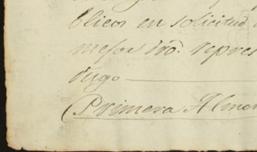 blicos en solicitud
mesor dro. repres
digo
(Primera Almon